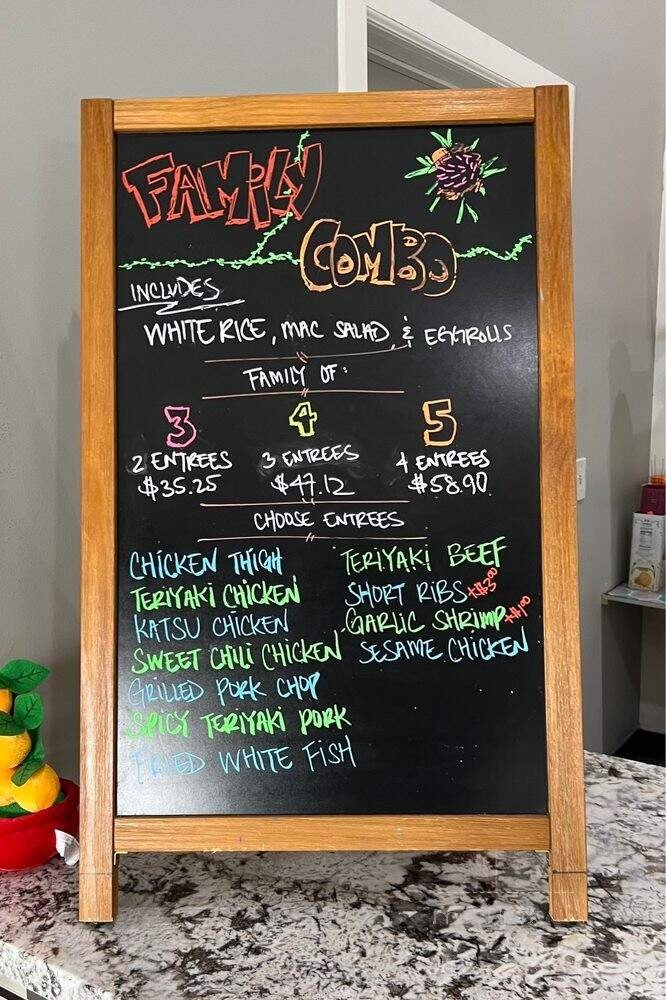 FAMILY
COMBO
INCLUDES
WHITE RICE, MAC SALAD, & EGGROLLS
FAMILY OF:
3 4 5
2 ENTREES 3 ENTREES 4 ENTREES
$35.25 $47.12 $58.90
CHOOSE ENTREES
CHICKEN THIGH
TERIYAKI CHICKEN
KATSU CHICKEN
SWEET CHILI CHICKEN
GRILLED PORK CHOP
SPICY TERIYAKI PORK
FRIED WHITE FISH
TERIYAKI BEEF
SHORT RIBS +$3.00
GARLIC SHRIMP +$1.00
SESAME CHICKEN